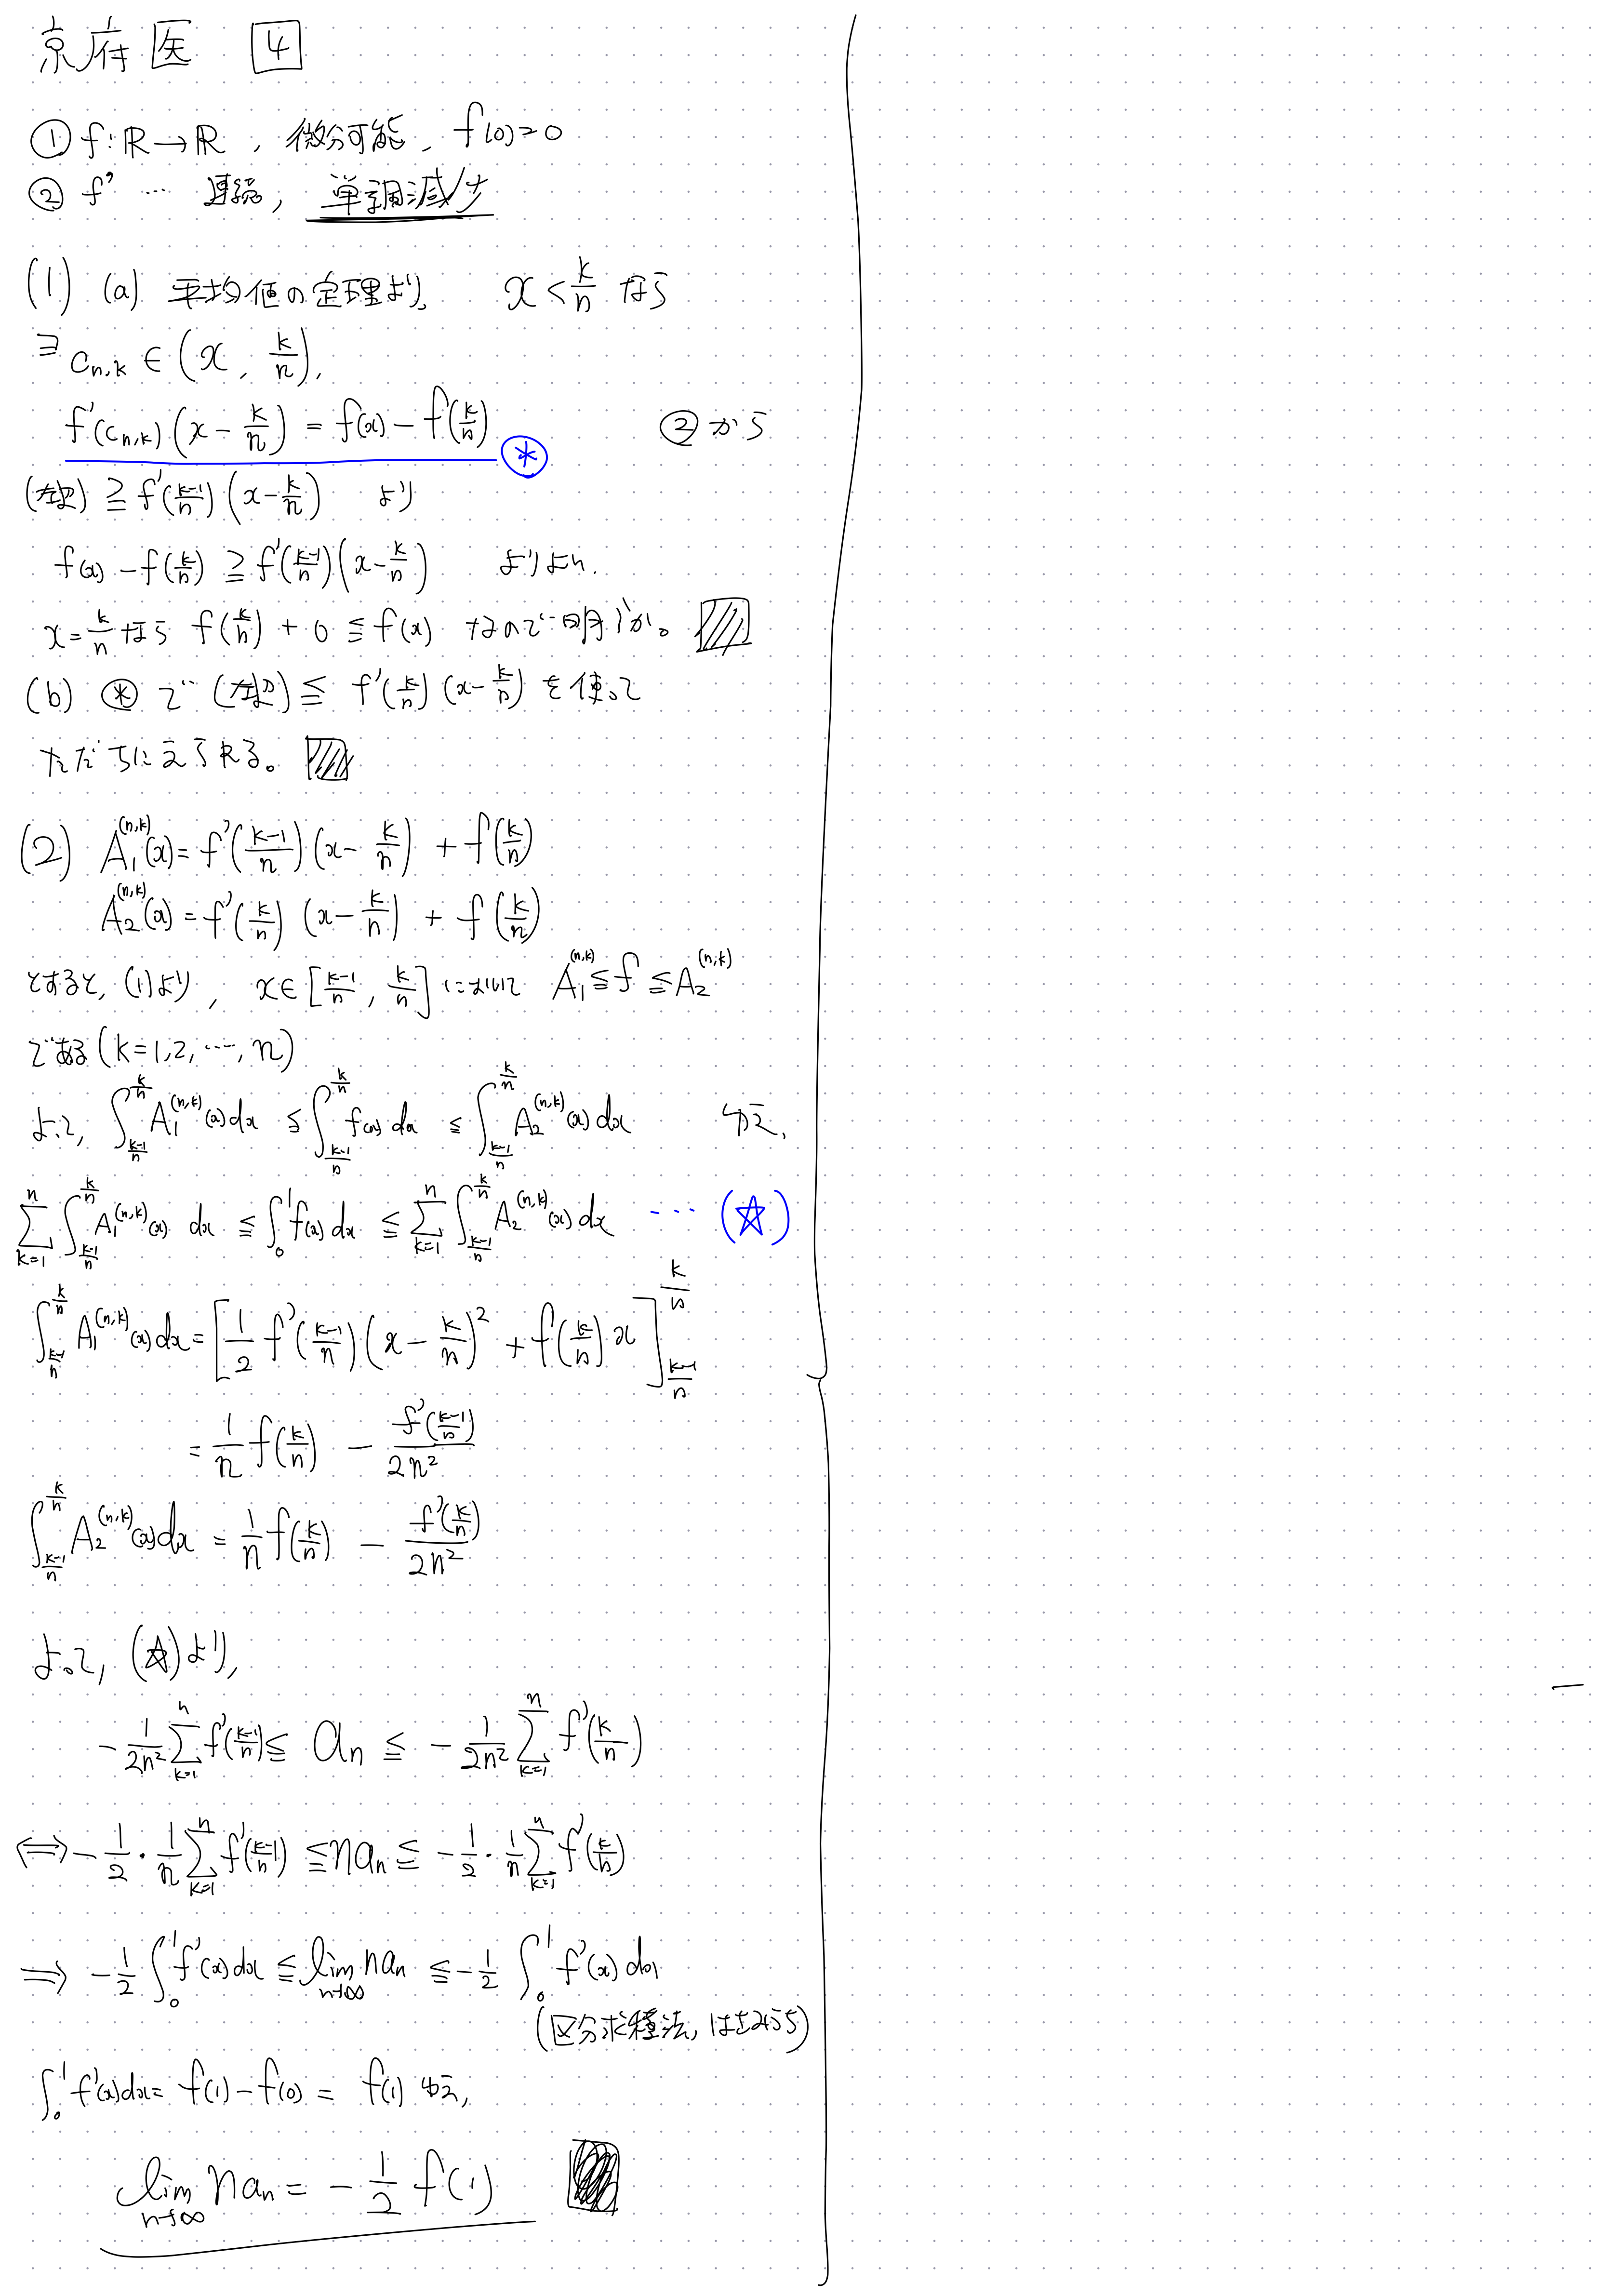 京府医 4
① f:ℝ→ℝ, 微分可能, f(0)=0
② f' … 連続, 単調減少
(1) (a) 平均値の定理より, x<k/n なら
∃c_{n,k} ∈ (x, k/n),
f'(c_{n,k})(x-k/n) = f(x)-f(k/n) ⊛ ②から
(左辺) ≧ f'((k-1)/n)(x-k/n) より
f(x)-f(k/n) ≧ f'((k-1)/n)(x-k/n) よりよい.
x=k/n なら f(k/n)+0 ≦ f(x) なので明らか。
(b) ⊛ で (左辺) ≦ f'(k/n)(x-k/n) を使って
ただちにえられる。
(2) A_1^{(n,k)}(x) = f'((k-1)/n)(x-k/n) + f(k/n)
A_2^{(n,k)}(x) = f'(k/n)(x-k/n) + f(k/n)
とすると, (1)より, x∈[(k-1)/n, k/n] において A_1^{(n,k)} ≦ f ≦ A_2^{(n,k)}
である (k=1,2,…,n)
よって, ∫_{(k-1)/n}^{k/n} A_1^{(n,k)}(x)dx ≦ ∫_{(k-1)/n}^{k/n} f(x)dx ≦ ∫_{(k-1)/n}^{k/n} A_2^{(n,k)}(x)dx ゆえ,
∑_{k=1}^{n} ∫_{(k-1)/n}^{k/n} A_1^{(n,k)}(x) dx ≦ ∫_0^1 f(x)dx ≦ ∑_{k=1}^{n} ∫_{(k-1)/n}^{k/n} A_2^{(n,k)}(x)dx … (☆)
∫_{(k-1)/n}^{k/n} A_1^{(n,k)}(x)dx = [1/2 f'((k-1)/n)(x-k/n)^2 + f(k/n)x]_{(k-1)/n}^{k/n}
= 1/n f(k/n) - f'((k-1)/n)/2n^2
∫_{(k-1)/n}^{k/n} A_2^{(n,k)}(x)dx = 1/n f(k/n) - f'(k/n)/2n^2
よって, (☆)より,
-1/2n^2 ∑_{k=1}^{n} f'((k-1)/n) ≦ a_n ≦ -1/2n^2 ∑_{k=1}^{n} f'(k/n)
⟺ -1/2・1/n ∑_{k=1}^{n} f'((k-1)/n) ≦ na_n ≦ -1/2・1/n ∑_{k=1}^{n} f'(k/n)
⟹ -1/2 ∫_0^1 f'(x)dx ≦ lim_{n→∞} na_n ≦ -1/2 ∫_0^1 f'(x)dx
(区分求積法, はさみうち)
∫_0^1 f'(x)dx = f(1)-f(0) = f(1) ゆえ,
lim_{n→∞} na_n = -1/2 f(1)